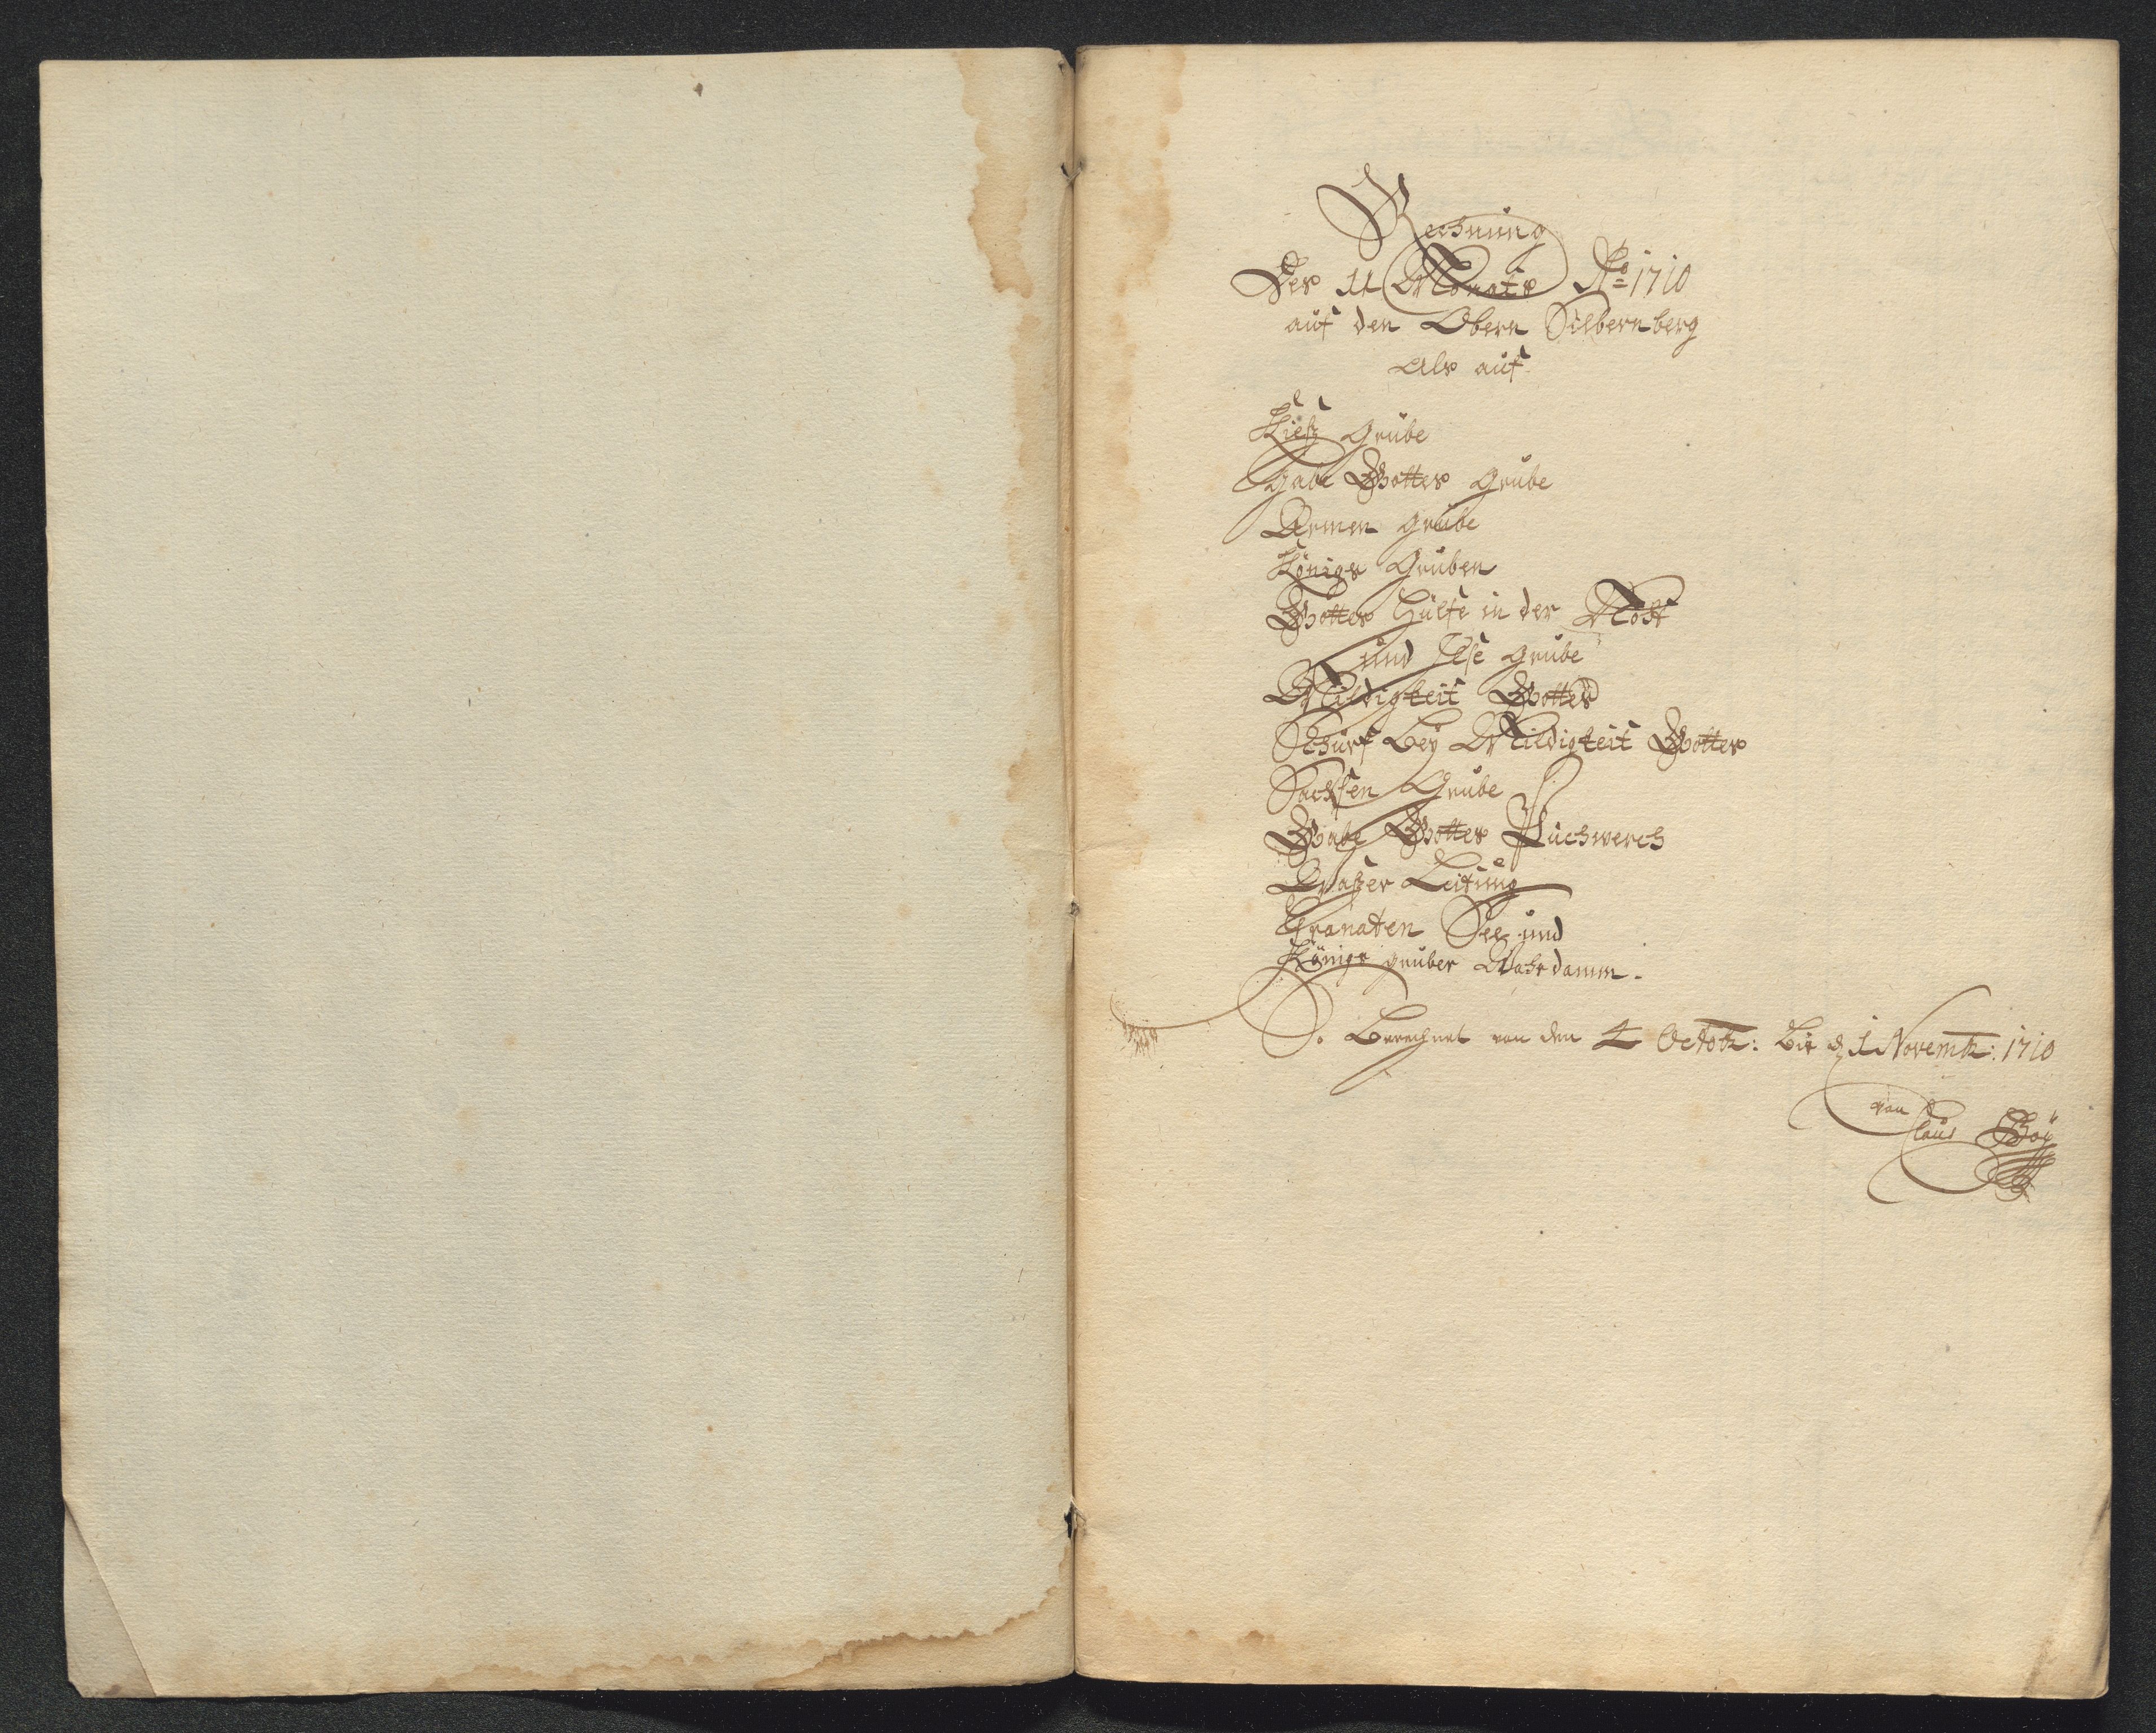 Rechnung
Des 11 Monats Ao 1710
auf den Obern Silbernberg
Als auf
Kieß Grube
Gabe Gottes Grube
Armen Grube
Königs Gruben
Gottes Hülfe in der Noht
und Grube
Mildigkeit Gottes
Schurf bey Mildigkeit Gottes
Sachsen Grube
Gabe Gottes Puchwerch
Waßer Leitung
Granaten See und
Königs gruber damm.
So Berechnet von den 4 Octob: bis d 1 Novemb: 1710
von
Claus